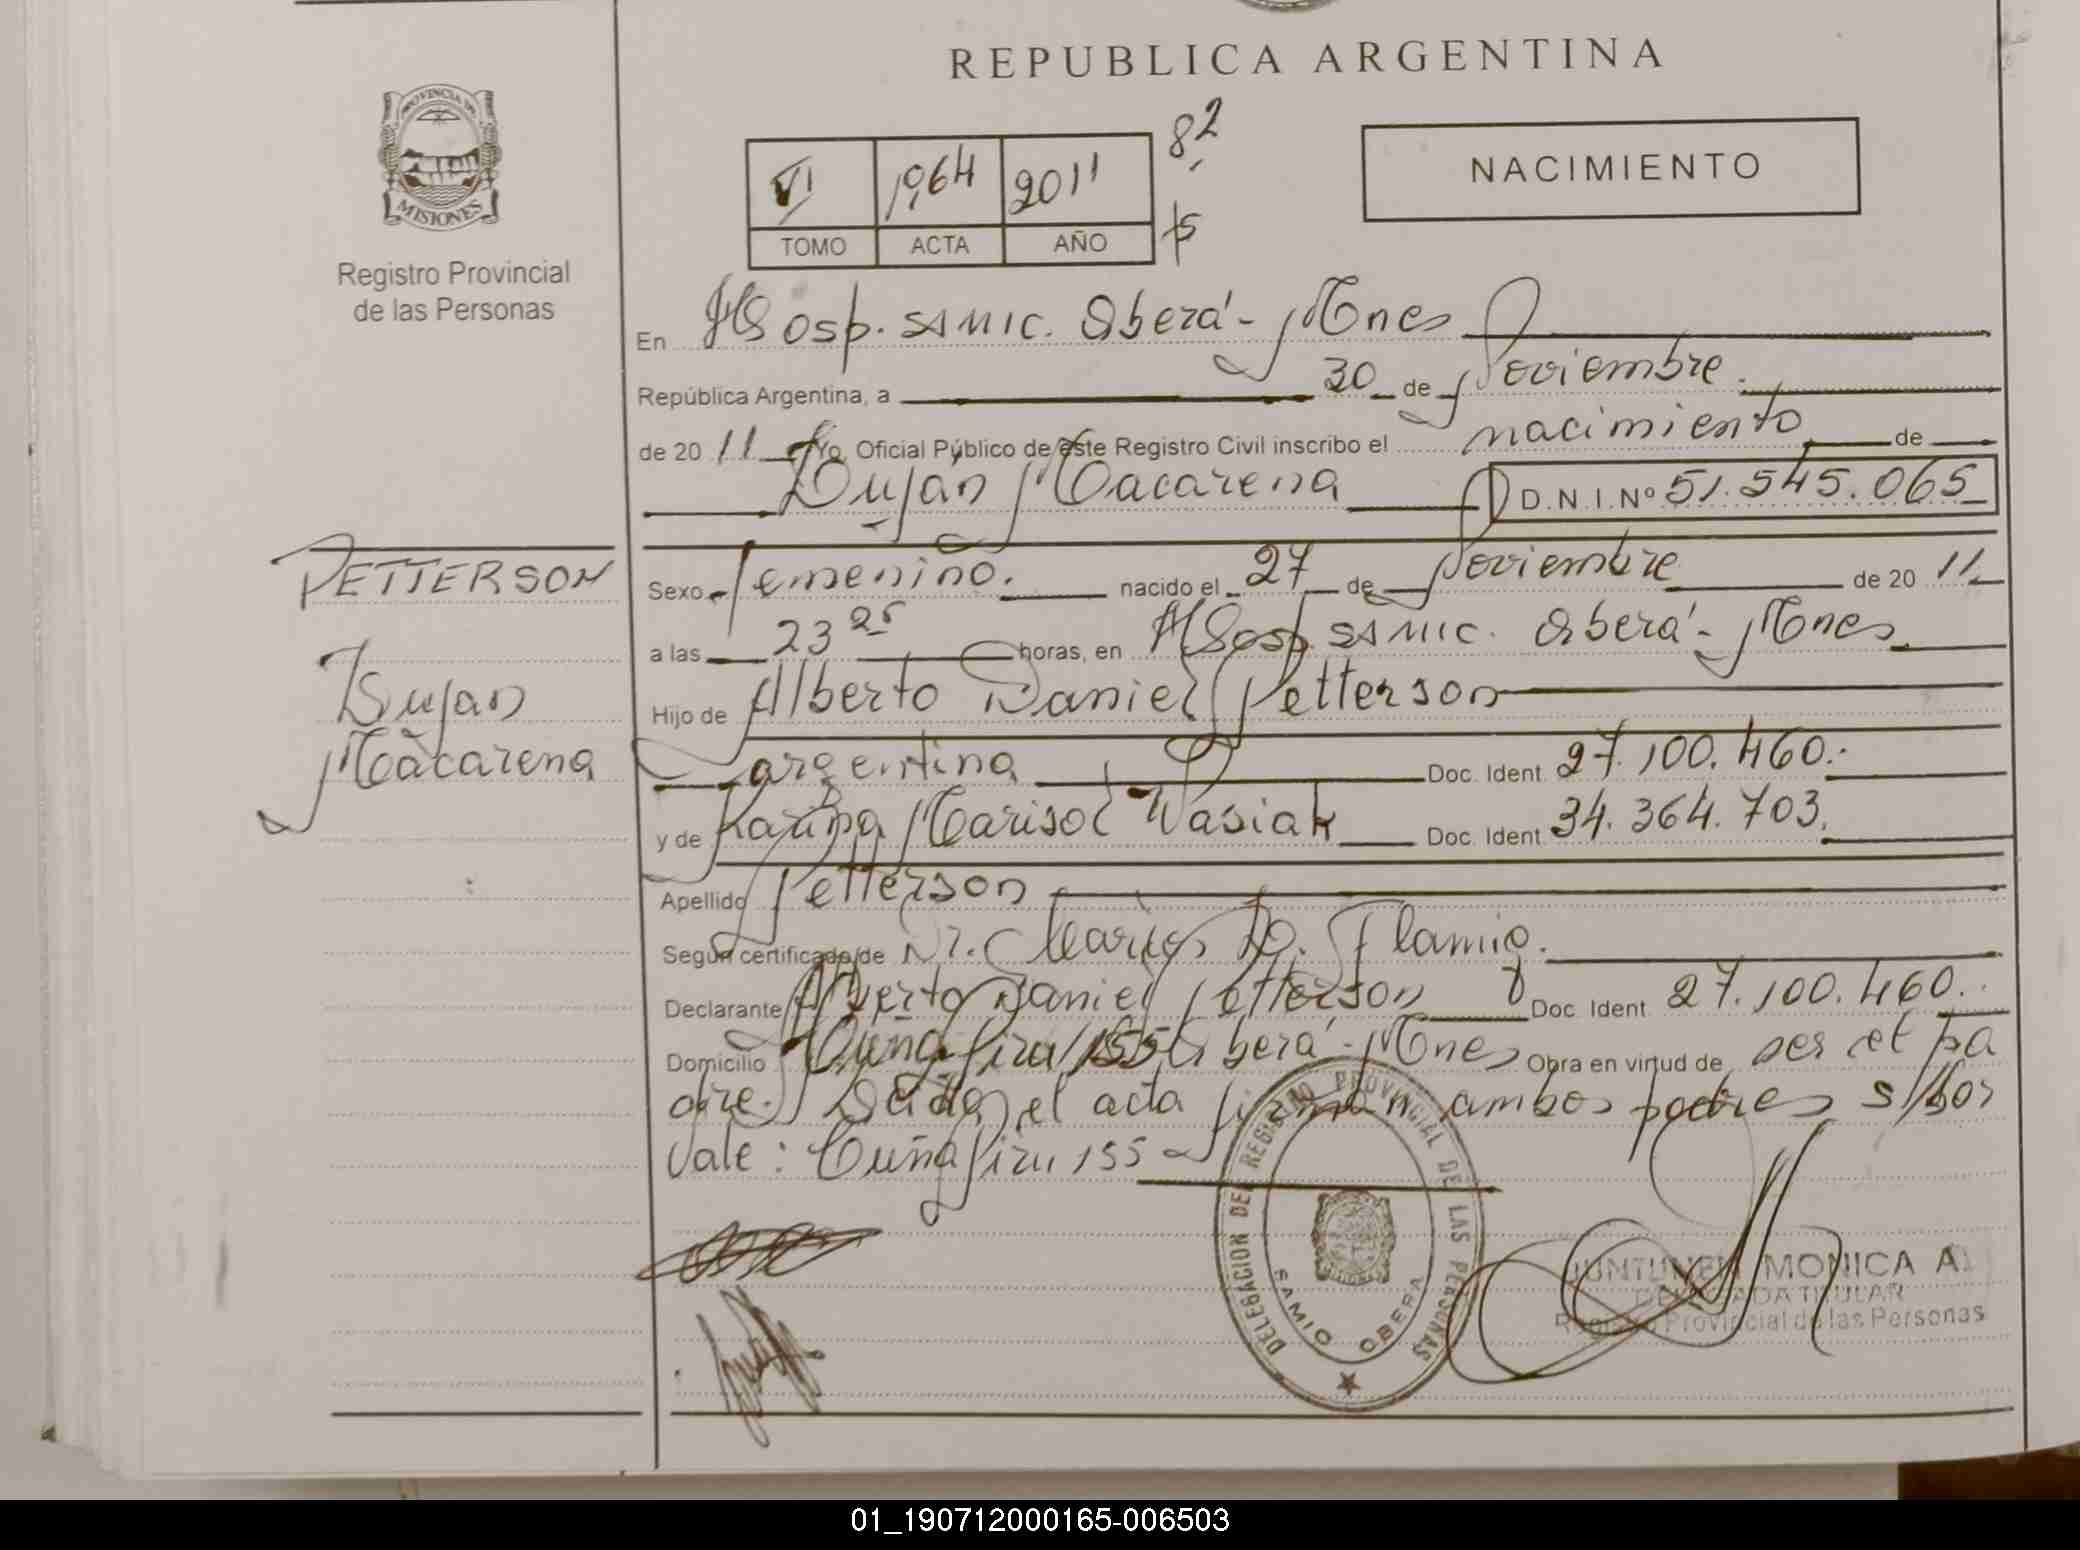 REPUBLICA ARGENTINA
PROVINCIA DE
MISIONES
Registro Provincial
de las Personas
VI 1964 2011 82
TOMO ACTA AÑO
NACIMIENTO
En Hosp. SAMIC. Oberá - Mnes
República Argentina, a 30 de Noviembre.
de 20 11 Yo, Oficial Público de este Registro Civil inscribo el nacimiento de
Luján Macarena D.N.I.Nº 51.545.065
PETTERSON
Luján
Macarena
Sexo Femenino. nacido el 27 de Noviembre de 20 11
a las 23 25 horas, en Hosp. SAMIC. Oberá - Mnes
Hijo de Alberto Daniel Petterson
argentina Doc. Ident. 27.100.460.-
y de Marisol Wasiak Doc. Ident. 34.364.703.
Apellido Petterson
Según certificado de Dr. D. Flamig.
Declarante Alberto Daniel Petterson Doc. Ident. 27.100.460.
Domicilio Cuña Pirú 155 Oberá - Mnes Obra en virtud de ser el pa
dre. Leida el acta firman ambos padres s/bor
Vale: Cuña Pirú 155
DELEGACION DEL REGISTRO PROVINCIAL DE LAS PERSONAS
SAMIC OBERA
JUNTUNEN MONICA A
DELEGADA TITULAR
Registro Provincial de las Personas
01_190712000165-006503